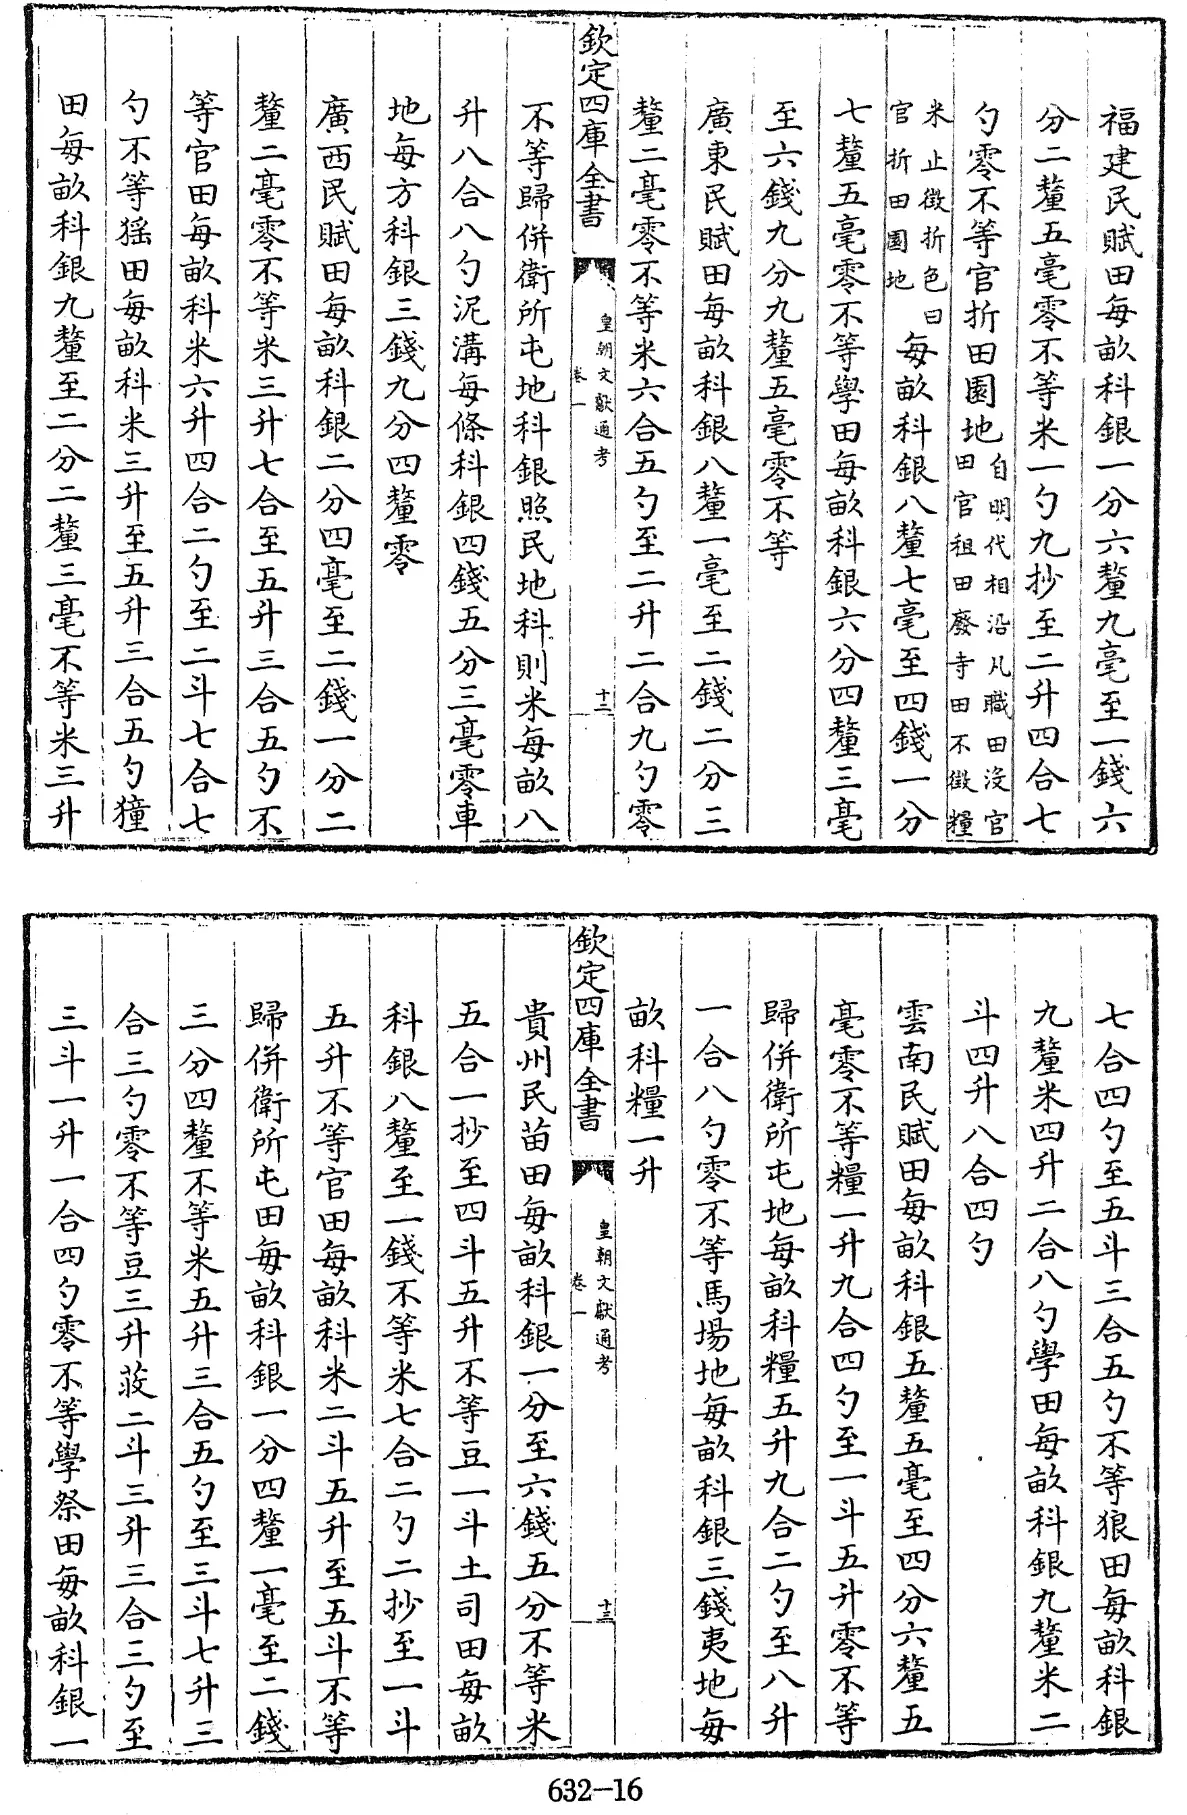 福建民賦田每畝科銀一分六釐九毫至一錢六
分二釐五毫零不等米一勺九抄至二升四合七
勺零不等官折田園地自明代相沿凡職田沒官
田官租田廢寺田不徵糧
米止徵折色曰
官折田園地
每畝科銀八釐七毫至四錢一分
七釐五毫零不等學田每畝科銀六分四釐三毫
至六錢九分九釐五毫零不等
廣東民賦田每畝科銀八釐一毫至二錢二分三
釐二毫零不等米六合五勺至二升二合九勺零
欽定四庫全書
皇朝文獻通考
卷一
十二
不等歸併衛所屯地科銀照民地科則米每畝八
升八合八勺泥溝每條科銀四錢五分三毫零車
地每方科銀三錢九分四釐零
廣西民賦田每畝科銀二分四毫至二錢一分二
釐二毫零不等米三升七合至五升三合五勺不
等官田每畝科米六升四合二勺至二斗七合七
勺不等猺田每畝科米三升至五升三合五勺獞
田每畝科銀九釐至二分二釐三毫不等米三升
七合四勺至五斗三合五勺不等狼田每畝科銀
九釐米四升二合八勺學田每畝科銀九釐米二
斗四升八合四勺
雲南民賦田每畝科銀五釐五毫至四分六釐五
毫零不等糧一升九合四勺至一斗五升零不等
歸併衛所屯地每畝科糧五升九合二勺至八升
一合八勺零不等馬場地每畝科銀三錢夷地每
畝科糧一升
欽定四庫全書
皇朝文獻通考
卷一
十三
貴州民苗田每畝科銀一分至六錢五分不等米
五合一抄至四斗五升不等豆一斗土司田每畝
科銀八釐至一錢不等米七合二勺二抄至一斗
五升不等官田每畝科米二斗五升至五斗不等
歸併衛所屯田每畝科銀一分四釐一毫至二錢
三分四釐不等米五升三合五勺至三斗七升三
合三勺零不等豆三升莜二斗三升三合三勺至
三斗一升一合四勺零不等學祭田每畝科銀一
632-16